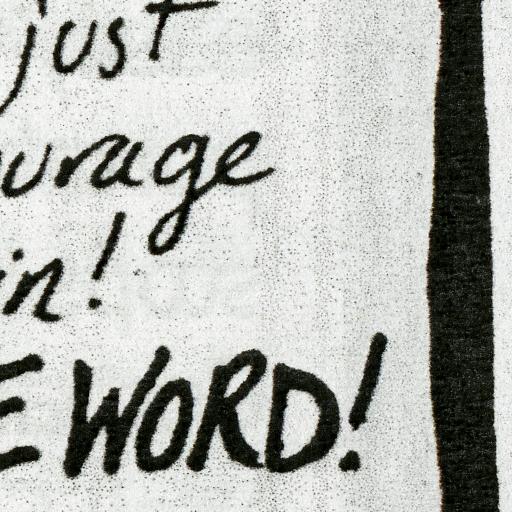 just
ourage
in!
E WORD!